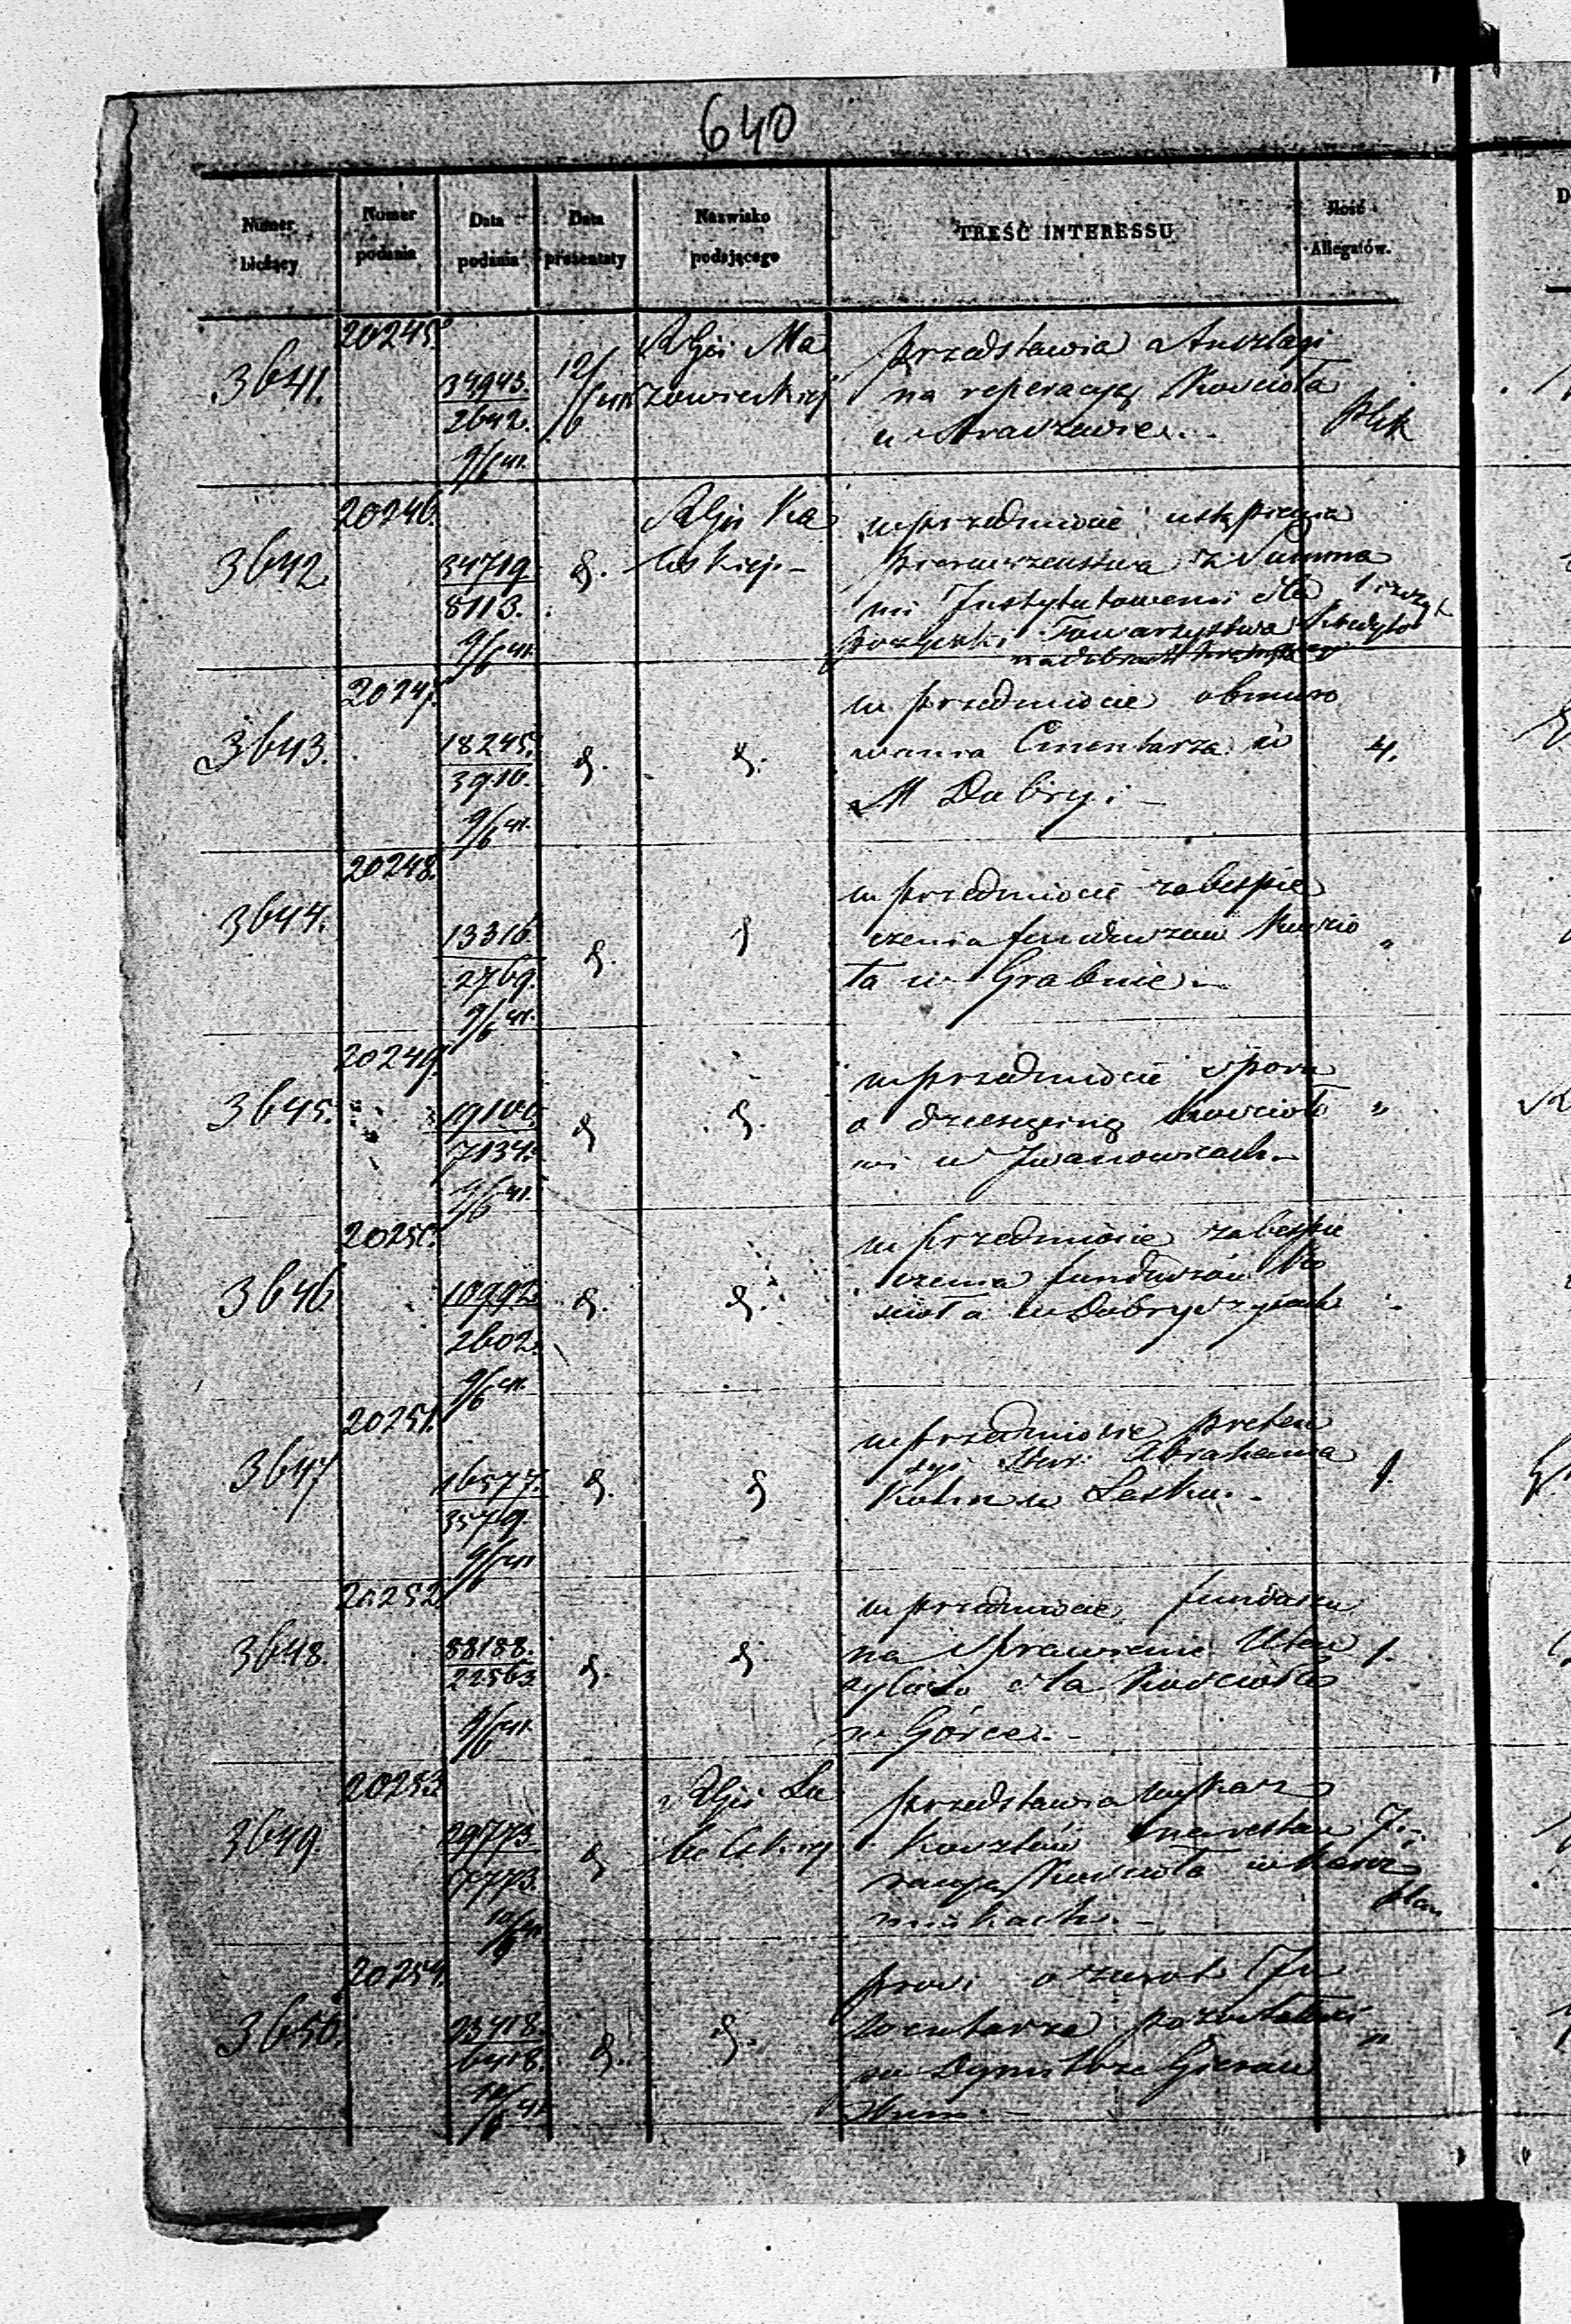 640
Numer bieżący
Numer podania
Data podania
Data prezentaty
Nazwisko podającego
TREŚĆ INTERESSU
Ilość Allegatów.
3641.
20245.
34943.
2642.
9/6 41.
12/6 41
Rządu Ma
zowieckiej
przedstawia Anszlagi
na reperacyą Kościoła
w
3642.
20246.
34719.
8113.
9/6 41.
Ka
liskiej.
w przedmiocie ustąpienia
pierwszeństwa z Summa
mi Instytutowemi dla
pożyczki Towarzystwa Kredyto
3643.
20247.
18245.
3910.
9/6 41.
w przedmiocie obmuro
wania Cmentarza w
M Dobry.
4.
3644.
20248.
13316.
2769.
9/6 41.
w przedmiocie zabespie
czenia funduszów Kościo
ła w Grabnie.
"
3645.
20249.
19100.
7134.
9/6 41.
w przedmiocie sporu
o dziesięcinę Kościoło
wi w Iwanowicach.
"
3646
20250.
10992.
2602.
9/6 41.
w przedmiocie zabespie
czenia funduszów Ko
ścioła w Dobryszycach
3647
20251.
16577.
3579.
9/6 41
w przedmiocie preten
syi Abrahama
w Lasku.
1.
3648.
20252.
88188.
22563.
9/6 41.
w przedmiocie funduszu
na sprawienie Uten
syliów dla Kościoła
w Górce.
1.
3649.
20253
29773.
7773.
10/6 41
Lu
belskiej
przedstawia wykaz
kosztów na restau
racyą Kościoła w
7.
plan
3650.
20254.
23418.
6418.
10/6 41
prosi o zwrot In
wentarza pozostałości
po Dymitrze
"